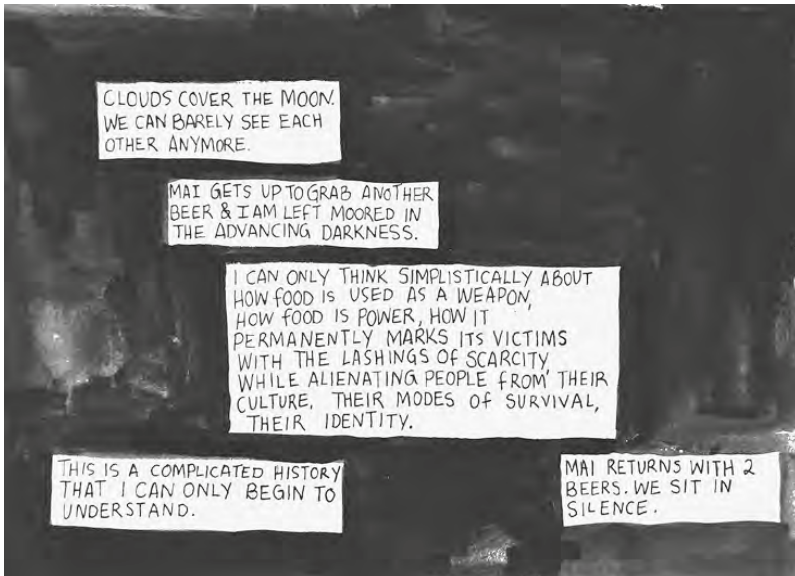 CLOUDS COVER THE MOON.
WE CAN BARELY SEE EACH
OTHER ANYMORE.
MAI GETS UP TO GRAB ANOTHER
BEER & I AM LEFT MOORED IN
THE ADVANCING DARKNESS.
I CAN ONLY THINK SIMPLISTICALLY ABOUT
HOW FOOD IS USED AS A WEAPON,
HOW FOOD IS POWER, HOW IT
PERMANENTLY MARKS ITS VICTIMS
WITH THE LASHINGS OF SCARCITY
WHILE ALIENATING PEOPLE FROM THEIR
CULTURE, THEIR MODES OF SURVIVAL,
THEIR IDENTITY.
THIS IS A COMPLICATED HISTORY
THAT I CAN ONLY BEGIN TO
UNDERSTAND.
MAI RETURNS WITH 2
BEERS. WE SIT IN
SILENCE.